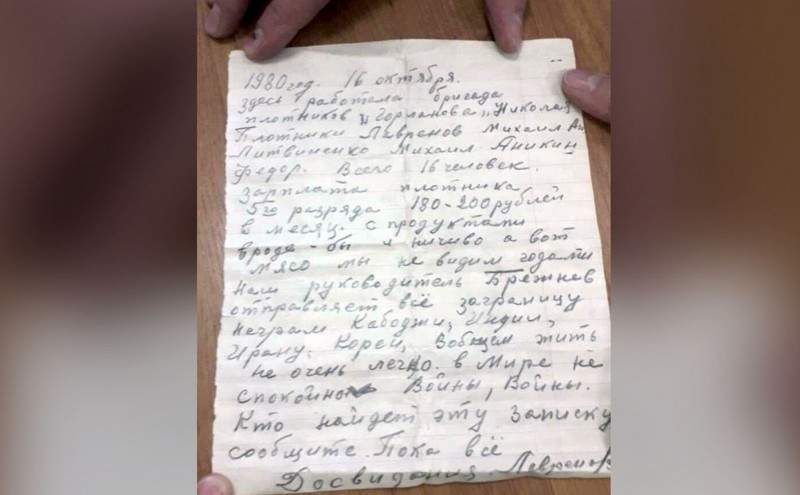 1980 год. 16 октября.
здесь работала бригада
плотников „Горланова„ Николая
Плотники Лавренов Михаил Ан
Литвиненко Михаил Аникин
Федор. Всего 16 человек.
Зарплата плотника
5го разряда 180-200 рублей
в месяц. с продуктами
вроде-бы и ничиво а вот
мясо мы не видим годами
наш руководитель Брежнев
отправляет всё заграницу
неграм Кабоджи, Индии,
Ирану. Кореи, Вобщем жить
не очень легко. в Мире не
спокойно Войны, Войны.
Кто найдет эту записку
сообщите. Пока всё
Досвидания Лавренов